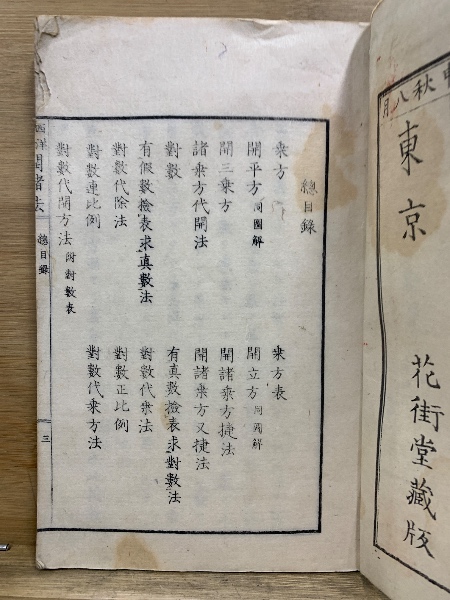 秋八月
東京
花街堂藏版
總目錄
乘方
乘方表
開平方 同圖解
開立方 同圖解
開三乘方
開諸乘方捷法
諸乘方代開法
開諸乘方又捷法
對數
有真數撿表求對數法
有假數撿表求真數法
對數代乘法
對數代除法
對數正比例
對數連比例
對數代乘方法
對數代開方法 附對數表
西洋開諸法
總目錄
三